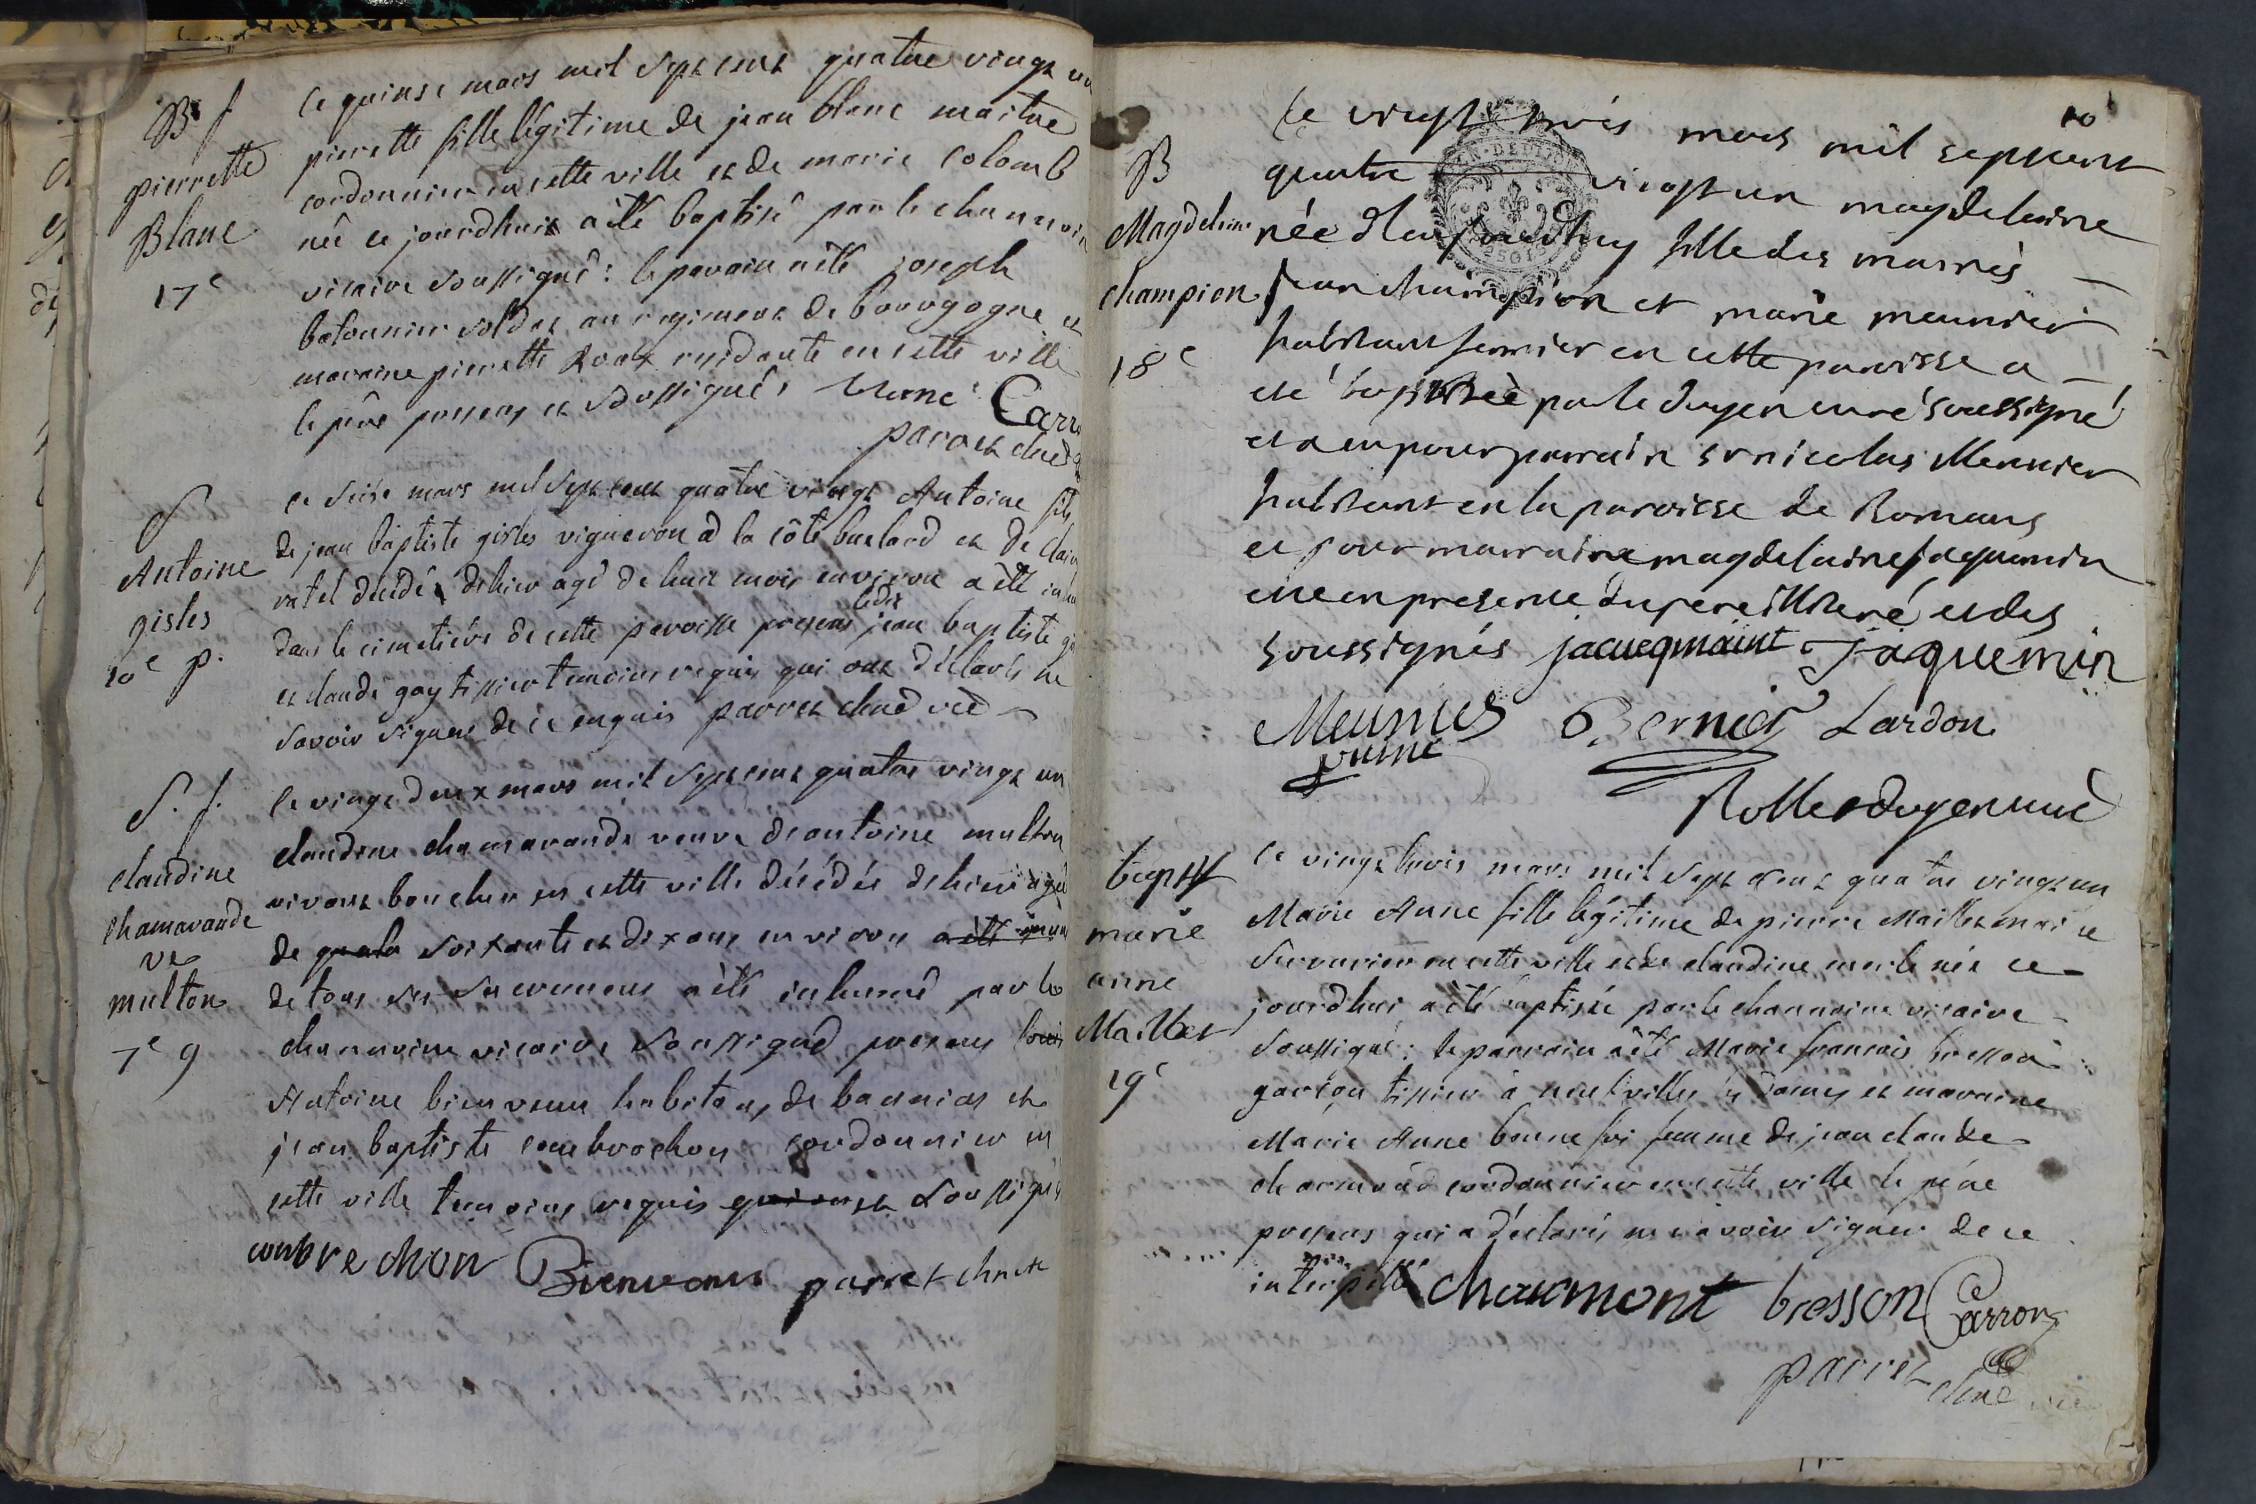 B f
pierrette
Blanc
17e
Ce quinse mars mil sept cent quatre vingt un
pierrette fille légitime de jean blanc maitre
cordonnier en cette ville et de marie colomb
née ce jourdhui a été baptisé par le chanoin
vicaire soussigné : le parain a été joseph
batonnier soldat au regiment de bourgogne et
maraine pierrette roux residante en cette ville
le père present et soussignés blanc Carr
parret
S
Antoine
gisles
10e p.
ce seise mars mil sept cent quatre vingt Antoine fils
de jean baptiste gisles vigneron à la côte et de clair
décédé dehier agé de huit mois environ a été inhu
ledit
dans le cimetière de cette paroisse presens jean baptiste gi
et claude gay tissier temoins requis qui ont déclarés ne
savoir signer de ce enquis parret
S. f.
claudine
chamarande
ve
multon
7e g
Ce vingt deux mars mil sept cent quatre vingt un
claudine chamarande veuve d'antoine multon
vivant boucher en cette ville décédée dehier agée
de soixante et dix ans environ a été
de tous ses sacremens a été inhumé par le
chanoine vicaire soussigné presens
Antoine bienvenu habitant de et
jean baptiste combrochon cordonnier en
cette ville temoins requis soussignés
combrechon Bienvenu parret
10
B
Magdelaine
champion
18e
Le vingt trois mars mil septcent
quatre vingt un magdelaine
née d'aujourdhuy fille des mariés
jean champion et marie meunier
habitant fermier en cette paroisse a
été baptisée par le doyen curé soussigné
et a eu pour parrain sr nicolas Meunier
habitant en la paroisse de Romans
et pour marraine magdelaine jaquemin
en presence du pere illiteré et des
soussignés jacueqmaint Jaquemin
Meunier Bernier Lardon
Rolle doyen curé
bapt
marie
anne
Maillet
19e
Ce vingt trois mars mil sept cent quatre vingt un
Marie Anne fille légitime de pierre Maillet
serrurier en cette ville et de claudine merle née ce
jourdhui a été baptisée par le chanoine vicaire
soussigné : le parrain a été Marie francois bresson
garçon tissier à neuville les dames et maraine
Marie Anne bonnefoi femme de jean claude
cordonnier en cette ville le père
present qui a déclaré ne savoir signer de ce
interpellé chaumont bresson Carron
parret